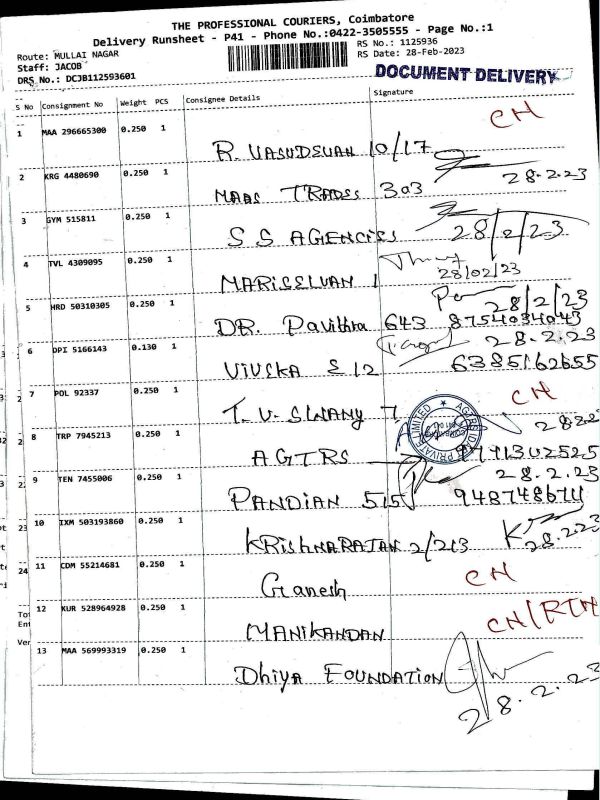 THE PROFESSIONAL COURIERS, Coimbatore
Delivery Runsheet - P41 - Phone No.:0422-3505555 - Page No.:1
Route: MULLAI NAGAR
RS No.: 1125936
Staff: JACOB
RS Date: 28-Feb-2023
DRS No.: DCJB112593601
DOCUMENT DELIVERY
S No Consignment No Weight PCS Consignee Details Signature
1 MAA 296665300 0.250 1 R. VASUDEVAN 10/17 CH
2 KRG 4480690 0.250 1 MAAS TRADES 303 28.2.23
3 GYM 515811 0.250 1 S S AGENCIES 28/2/23
4 TVL 4309095 0.250 1 MARISELVAN 1 28/02/23
5 HRD 50310305 0.250 1 DR. Pavithra 643 28/2/23 8754034043
6 DPI 5166143 0.130 1 VIVEKA S 12 28.2.23 6385162655
7 POL 92337 0.250 1 T. V. SWAMY 7 CH
8 TRP 7945213 0.250 1 AGTRS
9 TEN 7455006 0.250 1 PANDIAN 515 28.2.23
10 IXM 503193860 0.250 1 KRISHNARAJAN 2/213 28.2.23
11 CDM 55214681 0.250 1 Ganesh CH
12 KUR 528964928 0.250 1 MANIKANDAN CH/RTH
13 MAA 569993319 0.250 1 Dhiya FOUNDATION 28.2.23